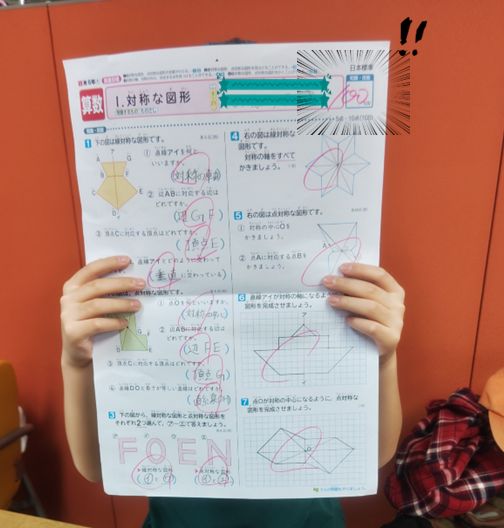 !!
日本標準
算数
1.対称な図形
100
1 下の図は線対称な図形です。
① 点線アイを何と
いいますか。
(対称の軸)
② 辺ABに対応する辺は
どれですか。
(辺GF)
③ 頂点Cに対応する頂点はどれですか。
(頂点E)
(垂直に交わっている)
点対称な図形です。
① 点Oを何といいますか。
(対称の中心)
② 辺ABに対応する辺は
どれですか。
(辺FE)
③ 頂点Cに対応する頂点はどれですか。
(頂点G)
④ 直線DOと長さが等しい直線はどれですか。
3 下の図から、線対称な図形と点対称な図形を
それぞれ2つ選んで、㋐~㋓で答えましょう。
FOEN
線対称な図形
点対称な図形
4 右の図は線対称な
図形です。
対称の軸をすべて
かきましょう。
5 右の図は点対称な図形です。
① 対称の中心Oを
かきましょう。
② 点Aに対応する点Bを
かきましょう。
6 点線アイが対称の軸になるように、線対称な
図形を完成させましょう。
7 点Oが対称の中心になるように、点対称な
図形を完成させましょう。